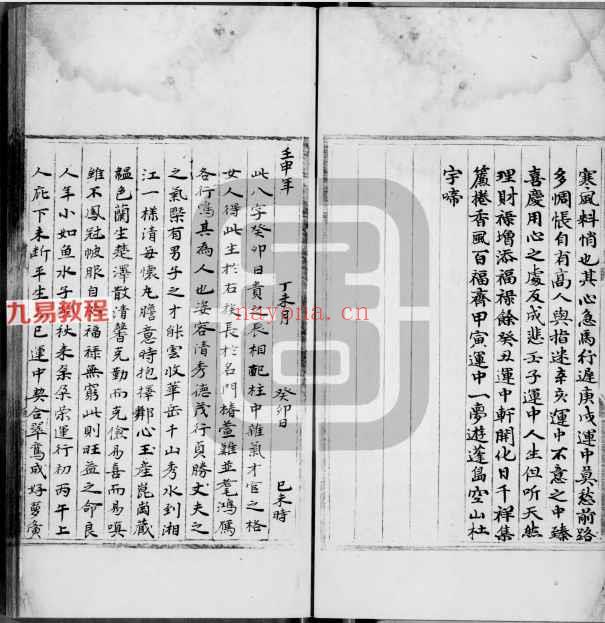 寒風料悄也其心急馬行遲庚戌運中莫愁前路
多惆悵自有高人與指迷辛亥運中不意之中臻
喜慶用心之處反成悲壬子運中人生但听天然
理財祿增添福祿餘癸丑運中軒開化日千祥集
簾捲香風百福齊甲寅運中一夢遊蓬島空山杜
宇啼
壬申年 丁未月 癸卯日 己未時
此八字癸卯日貴之長相配柱中雜氣才官之格
女人得此主於右族長於名門椿萱雖並耄鴻鴈
各行寫其為人也姿容清秀德茂行貞勝丈夫之
之氣槩有男子之才能雲收華岳千山秀水到湘
江一樣清每懷丸膽意時抱擇鄰心玉産崑崗藏
韞色蘭生楚澤散清馨克勤而克儉易喜而易嗔
雖不鳳冠帔服自 福祿無窮此則旺益之命良
人年小如魚水子 秋末朶朶榮運行初丙午上
人庇下未斷平生 巳運中契合翠鸞成好
九易教程
www.nayona.cn
nayona.cn